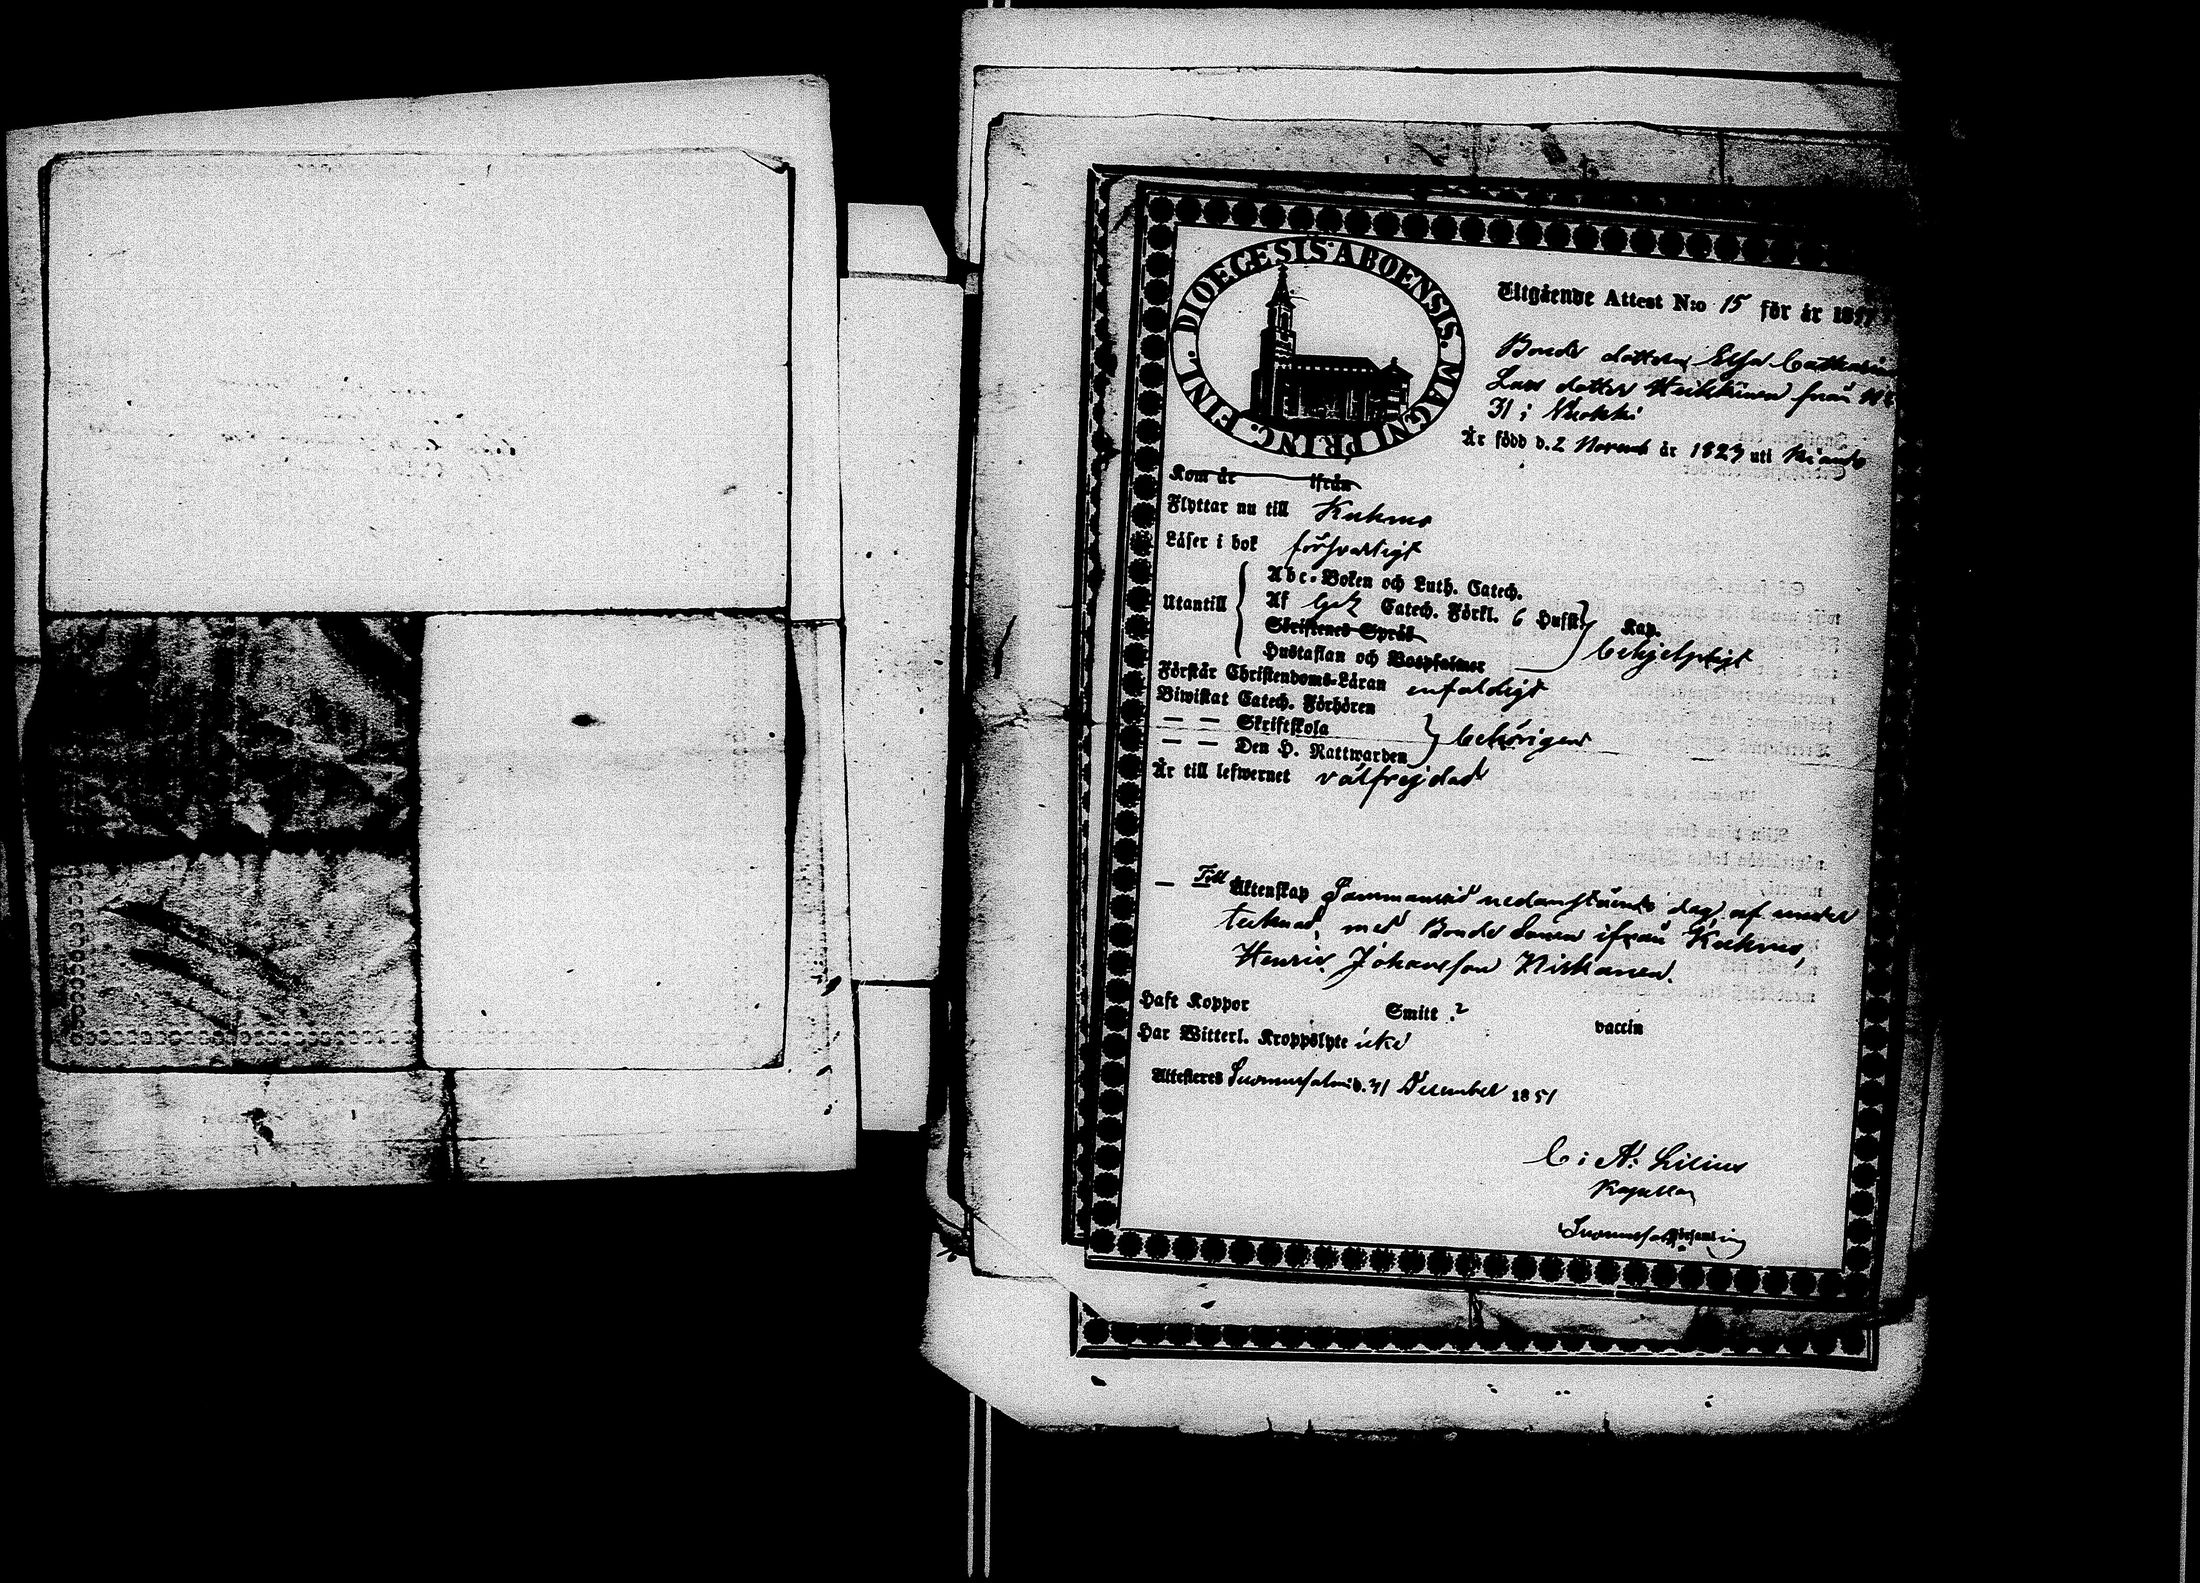 DIOECESIS ABOENSIS. MAGNI PRINC. FINL.
Utgående Attest N:o 15 för år 18
Bonde dottern Elsa Catharina
Lars dotter Heikkinen från N:o
31 i Vuokki
Är född d. 2 Novemb år 1823 uti
Kom år ifrån
Flyttar nu till Kuhmo
Läser i bok försvarligt
Utantill
Abc-Boken och Luth. Catech.
Af Catech. Förkl. 6 Hufst. Kap.
Skriftenes Språk
Hustaflan och Botpsalmer
behjelpligt
Förstår Christendoms-Läran enfaldigt
Biwistat Catech. Förhören
— — Skriftskola
— — Den H. Nattwarden
behörigen
Är till lefwernet välfrejdad
— Till Äktenskap Sammanvid nedanstående dag, af under
tecknad, med Bonde Sonen ifrån Kuhmo,
Henric Johansson Niskanen.
Haft Koppor Smitt ? vaccin
Har Witterl. Kroppslyte icke
Attesteres Suomussalmi d. 31 December 1851
C: A: Lilius
Kapellan